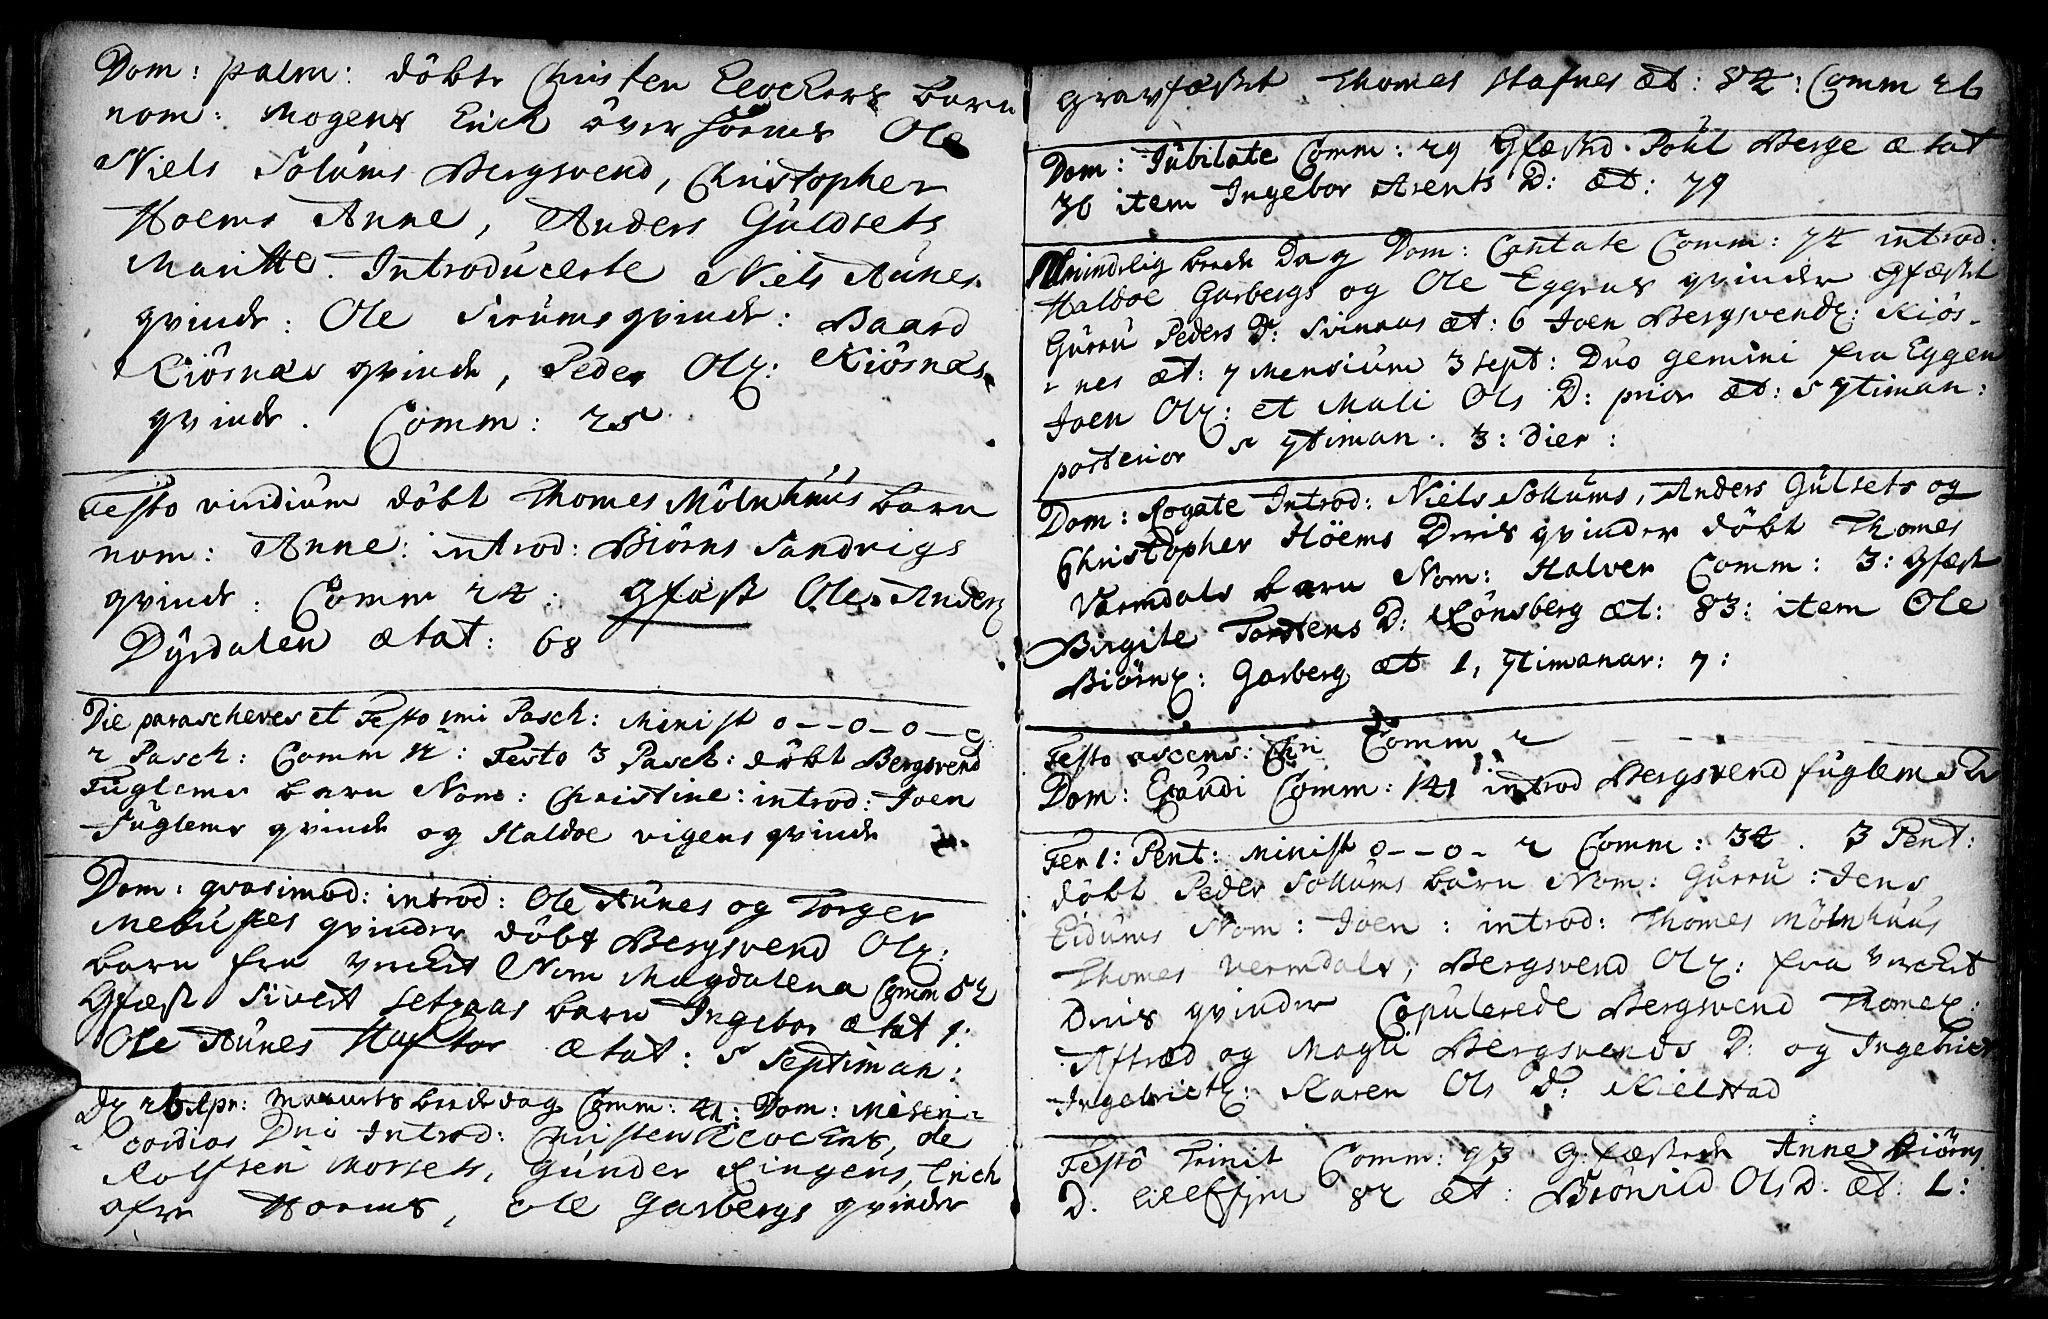 Dom: palm: döbte Christen Clockers barn
nom: Mogens Erich över Hoems Ole
Niels Solums Bergsvend, Christopher
Hoems Anne, Anders Guldsets
Maritte. Introducerte Niels Aunes
qvinde: Ole Sirums qvinde: Baard
Kiösnæs qvinde, Peder Olß: Kiösnæs
qvinde. Comm: 25
Festo viridium döbt Thomes Mölnhuus barn
nom: Anne: introd: Biörns Sandvigs
qvinde: Comm 24: Gfæst Ole Anderß
Dyrdalen ætat: 68
Die parascheves et Festo 1mi Pasch: Minist o - - o - o - o
2 Pasch: Comm 12: Festo 3 Pasch: döbt Bergsvend
Fuglems barn Nom: Christine: introd: Joen
Fuglems qvinde og Haldoe vigens qvinde
Dom: qvasimod: introd: Ole Aunes og Torger
Mebustes qvinder döbt Bergsvend Olß:
barn fra verket Nom Magdalena Comm 52
Gfæst Sivert Setsaas barn Ingebor ætat 1:
Ole Aunes Haftor ætat: 5 Septiman:
Dß 26 Apr: bededag Comm: 41: Dom: Miseri-
cordias Dni Introd: Christen Clockers, ole
Rolfsen Morsets, Gunder Ringens, Erich
ofre Hoems, ole Garbergs qvinder
gravfæstet Thomes Stafnes æt: 84: Comm 26
Dom: Jubilate Comm: 29 Gfæsted Povl Berge ætat
36 item Ingebor Arents D: æt: 79
Almindelig bede Dag Dom: Cantate Comm: 74 introd:
Haldoe Garbergs og Ole Eggens qvinder Gfæstet
Gurru Peders D: Svinaas æt: 6 Joen Bergsvendß: Kiös-
nes æt: 7 Mensium 3 sept: Duo gemini fra Eggen
Joen Olß: et Mali Ols D: prior æt: 5 7timan:
posterior 5 7timan: 3: dier:
Dom: Rogate Introd: Niels Sollums, Anders Gulsets og
Christopher Höems Deris qvinder döbt Thomes
Værmdals barn Nom: Halver Comm: 3: Gfæst
Birgite Torstens D: Rönsberg æt: 83: item Ole
Biörnß: Garberg æt 1, 7timanar: 7:
Festo ascens: Chri Comm 2
Dom: Exaudi Comm: 141 introd Bergsvend fuglems
Fer 1: Pent: Minist o - - o - 2 Comm: 34. 3 Pent:
döbt Peder Sollums barn Nom: Gurru: Jens
Eidums Nom: Joen: introd: Thomes Mölnhuus
Thomes Vermdals, Bergsvend Olß: fra verket
Deris qvinder Copulerede Bergsvend Thomeß:
Aftræd og Magli Bergsvends D: og Ingebrict
Ingebrictß: Karen Ols D: Kielstad
Festo Trinit Comm: 93 Gfæstede Anne Biörns
D. 82 æt: Brönild Ols D. æt. 1: